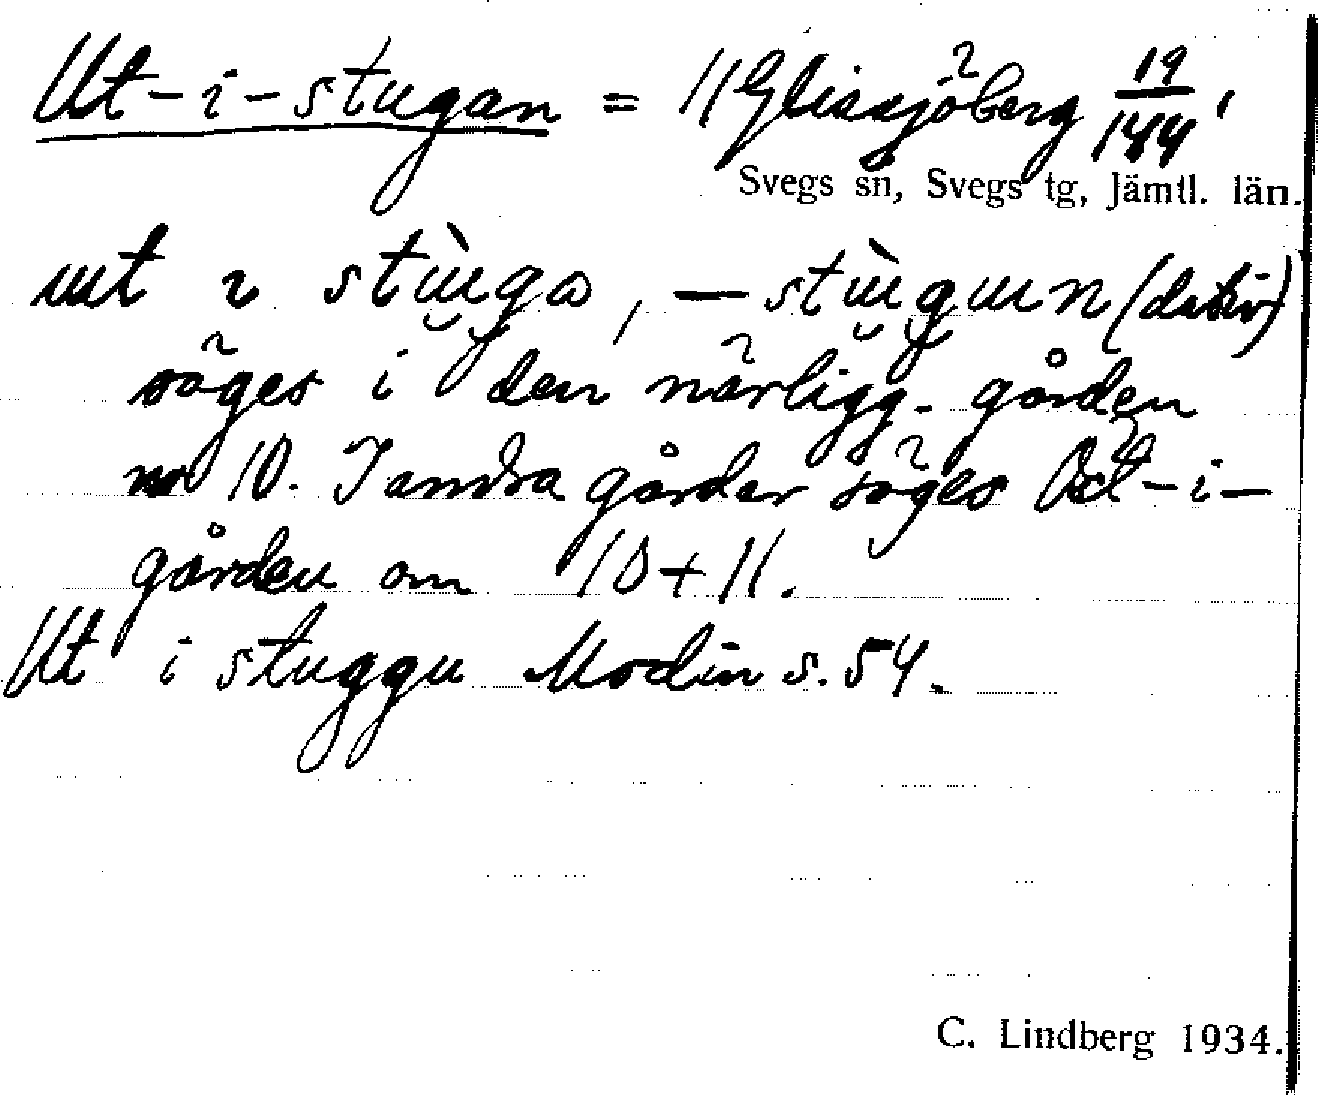 Ut-i-stugan = 11 Glissjöberg 19/144,
Svegs sn, Svegs tg, Jämtl. län.
ɯt ɩ stɯ̀ga, — stɯ̀gɯn (dativ)
säges i den närligg. gården
no 10. I andra gårdar säges Öst-i-
gården om 10+11.
Ut i stuggu Modin s. 54.
C. Lindberg 1934.